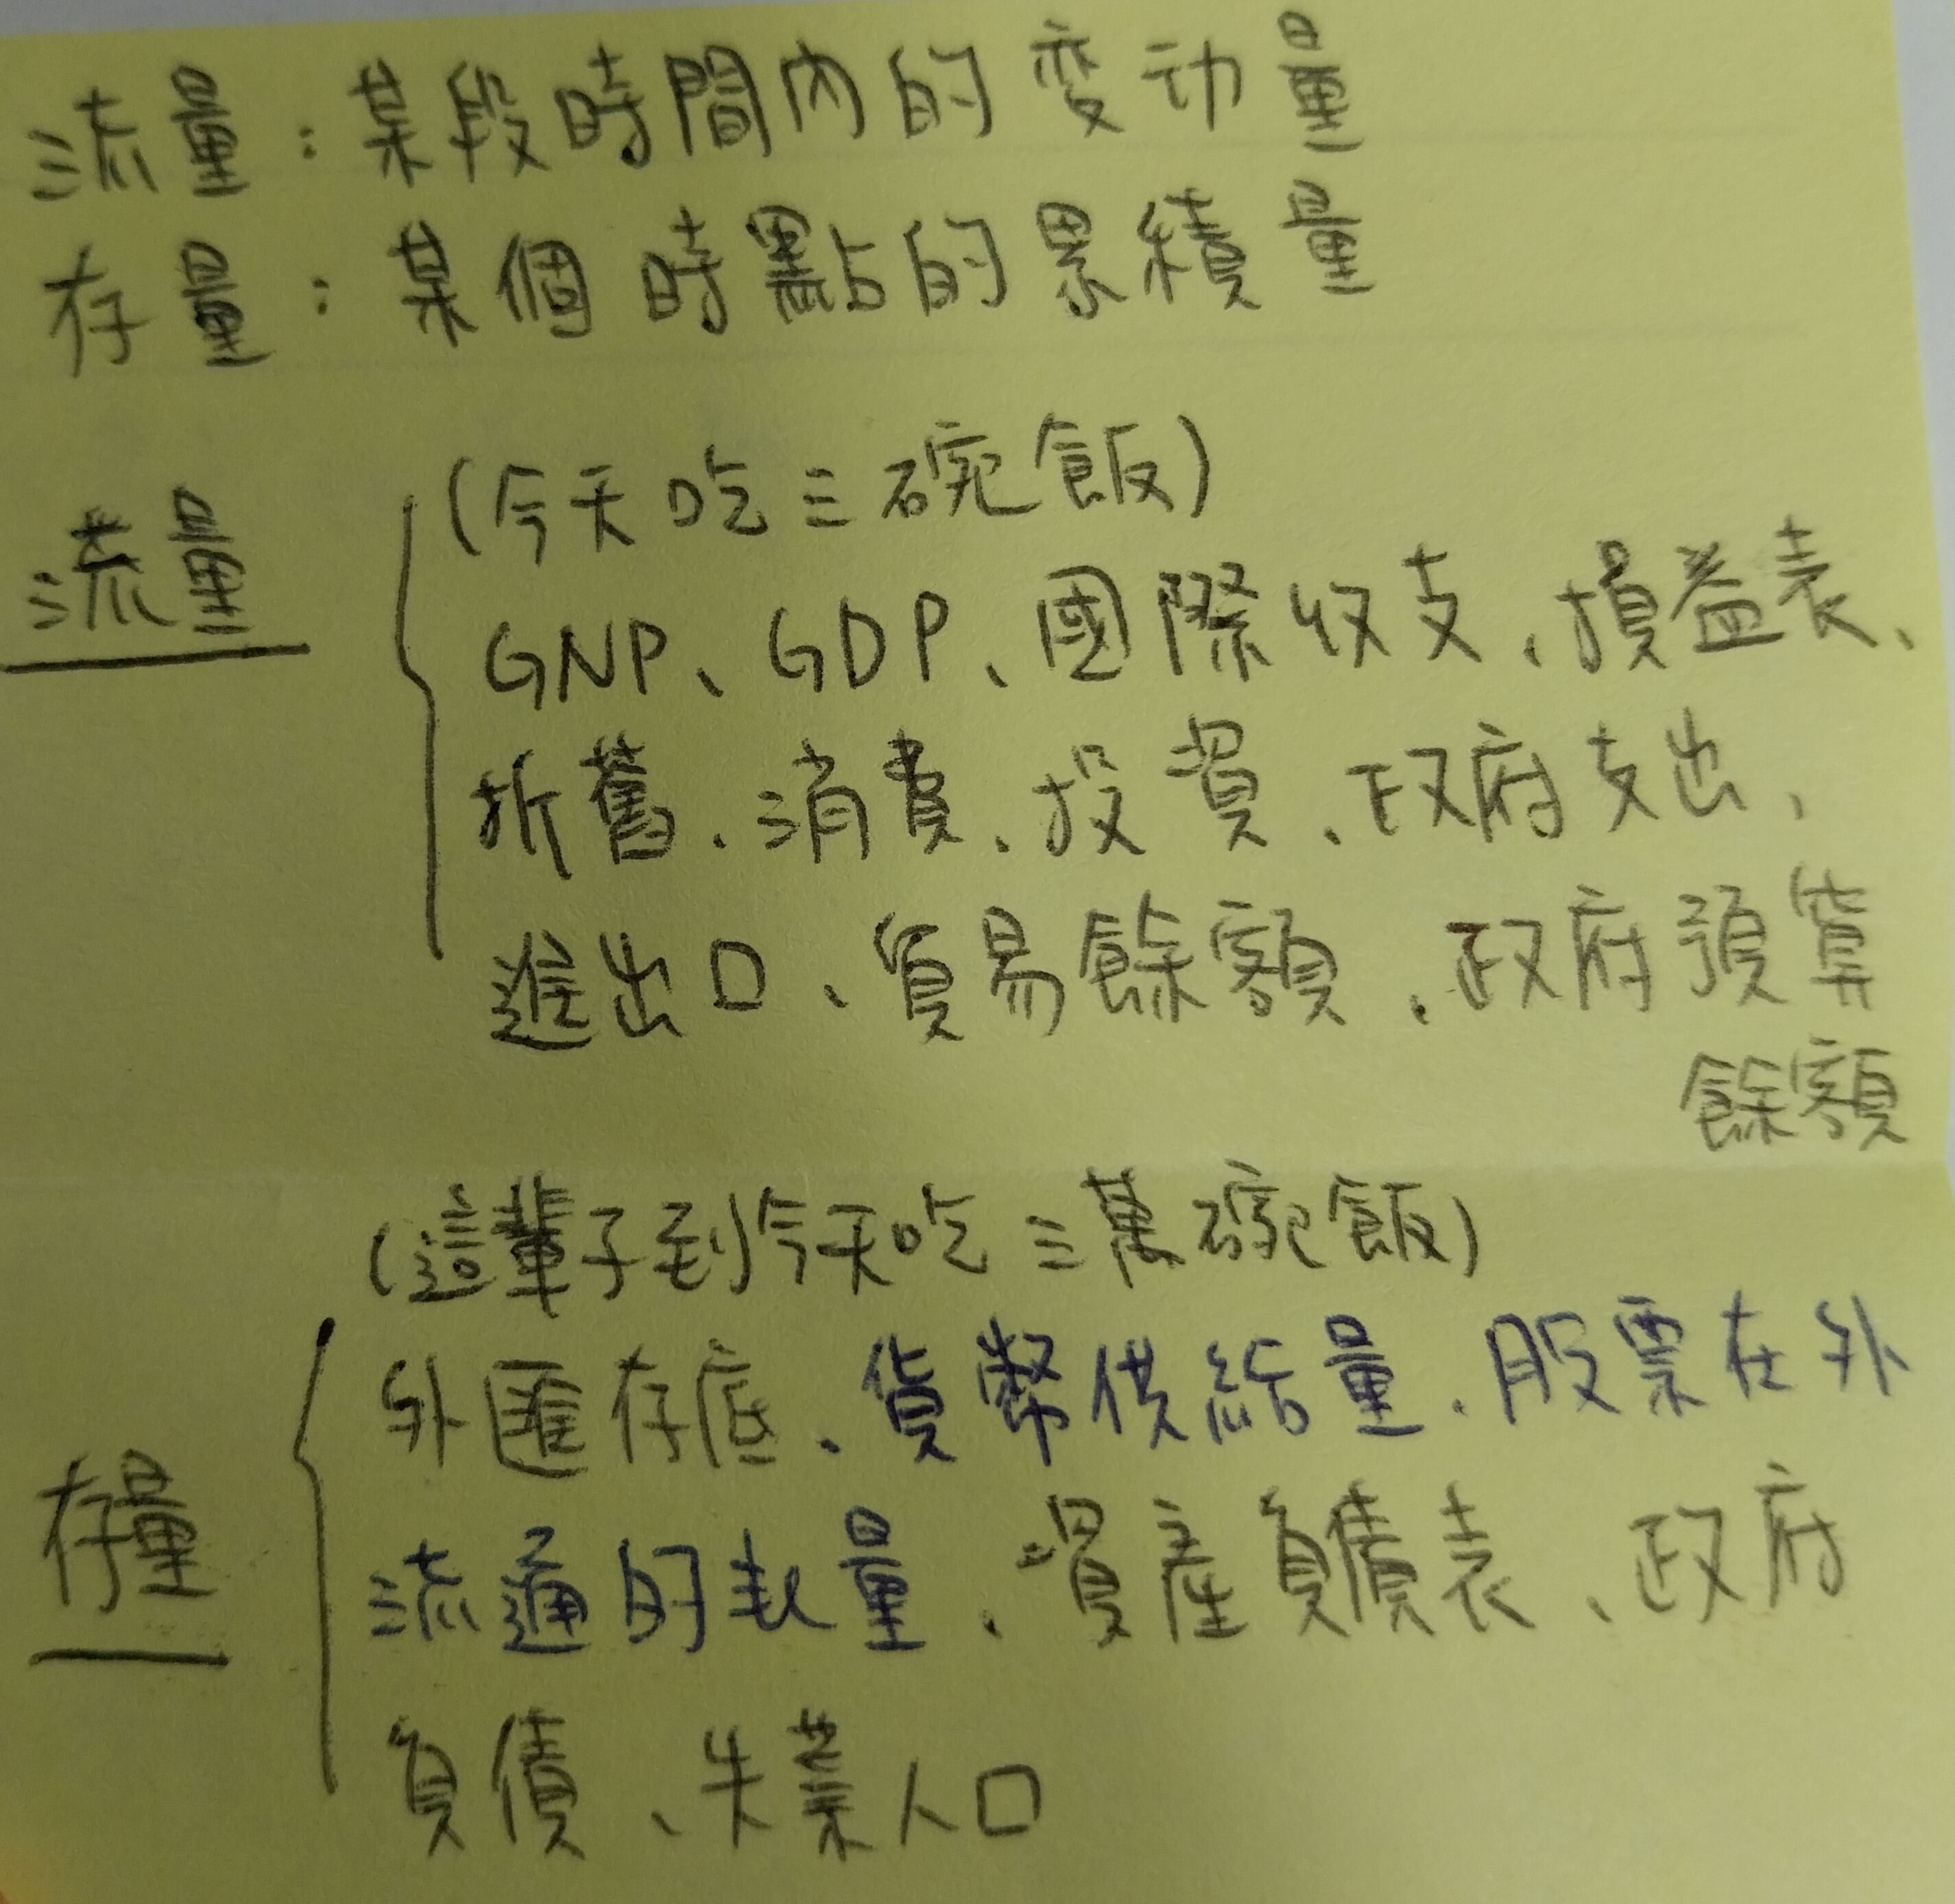 流量：某段時間內的变动量
存量：某個時點的累積量
(今天吃三碗飯)
流量
GNP、GDP、國際收支、損益表、
折舊、消費、投資、政府支出、
進出口、貿易餘額、政府預算
餘額
(這輩子到今天吃三萬碗飯)
外匯存底、貨幣供給量、股票在外
存量
流通的数量、資產負債表、政府
負債、失業人口